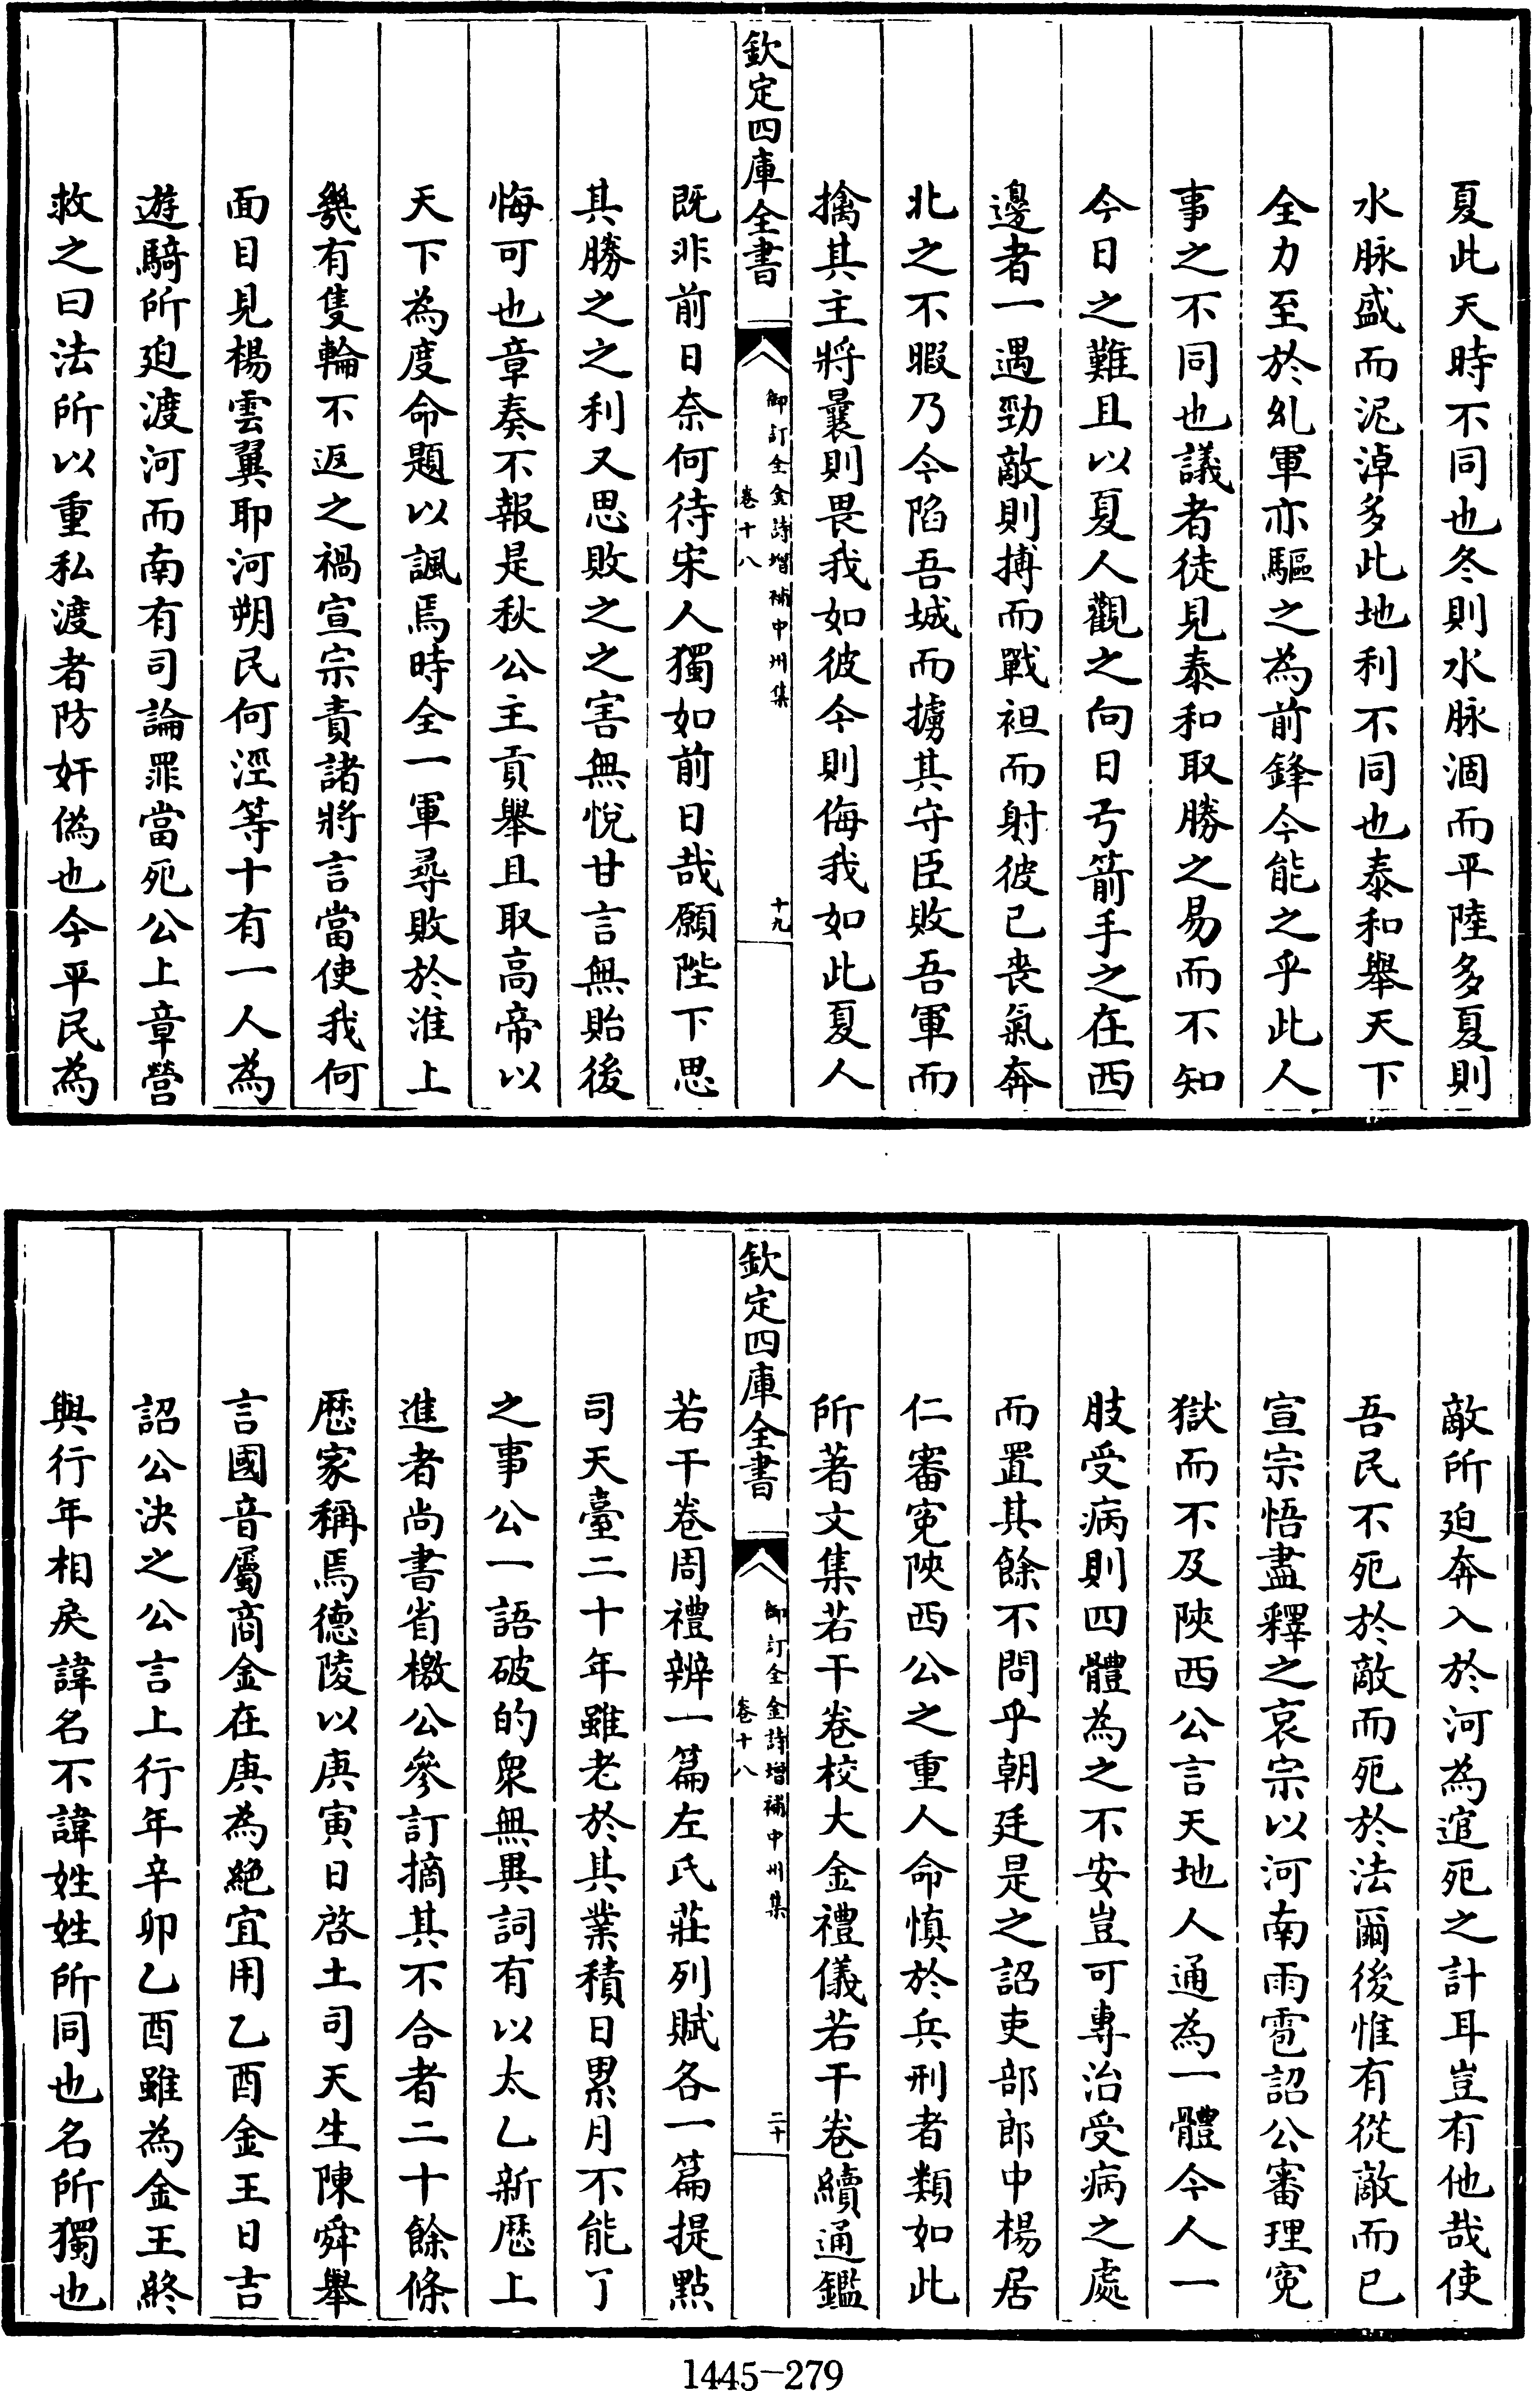 夏此天時不同也冬則水脉涸而平陸多夏則
水脉盛而泥淖多此地利不同也泰和舉天下
全力至於乣軍亦驅之為前鋒今能之乎此人
事之不同也議者徒見泰和取勝之易而不知
今日之難且以夏人觀之向日弓箭手之在西
邊者一遇勁敵則搏而戰袒而射彼已喪氣奔
北之不暇乃今陷吾城而擄其守臣敗吾軍而
擒其主將曩則畏我如彼今則侮我如此夏人
欽定四庫全書
御訂全金詩增補中州集
卷十八
十九
既非前日奈何待宋人獨如前日哉願陛下思
其勝之之利又思敗之之害無悅甘言無貽後
悔可也章奏不報是秋公主貢舉且取高帝以
天下為度命題以諷焉時全一軍尋敗於淮上
幾有隻輪不返之禍宣宗責諸將言當使我何
面目見楊雲翼耶河朔民何涇等十有一人為
遊騎所廹渡河而南有司論罪當死公上章營
救之曰法所以重私渡者防奸偽也今平民為
敵所廹奔入於河為逭死之計耳豈有他哉使
吾民不死於敵而死於法爾後惟有從敵而已
宣宗悟盡釋之哀宗以河南雨雹詔公審理寃
獄而不及陜西公言天地人通為一體今人一
肢受病則四體為之不安豈可專治受病之處
而置其餘不問乎朝廷是之詔吏部郎中楊居
仁審寃陜西公之重人命慎於兵刑者類如此
所著文集若干卷校大金禮儀若干卷續通鑑
欽定四庫全書
御訂全金詩增補中州集
卷十八
二十
若干卷周禮辨一篇左氏莊列賦各一篇提點
司天臺二十年雖老於其業積日累月不能了
之事公一語破的衆無異詞有以太乙新厯上
進者尚書省檄公參訂摘其不合者二十餘條
厯家稱焉德陵以庚寅日啓土司天生陳舜舉
言國音屬商金在庚為絕宜用乙酉金王日吉
詔公決之公言上行年辛卯乙酉雖為金王終
與行年相戾諱名不諱姓姓所同也名所獨也
1445-279